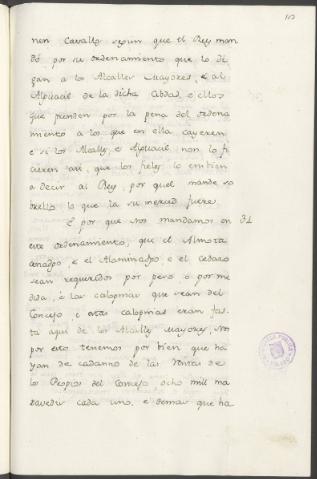 113
nen Cavallo, segun que el Rey man
dó por su ordenamiento que lo di
gan a los Alcalles Mayores, e al
Alguacil de la dicha Cibdad, e ellos
que prenden por la pena del ordena
miento a los que en ella cayeren
e si los Alcalles, e Alguacil non lo fi
cieren asi, que los fieles lo embien
a decir al Rey, por quel mande so
brello lo que la su merced fuere.
E por que nos mandamos en 31
este ordenamiento, que el Almota
e el e el
sean requeridos por pero o por me
dida, e las caloynas que sean del
Concejo, e estas caloynas eran fas
ta aqui de los Alcalles Mayores, Nos
por esto tenemos por bien que ha
yan de cadanno de las Rentas de
los Propios del Concejo, ocho mil ma
ravedis cada uno, e demas que ha